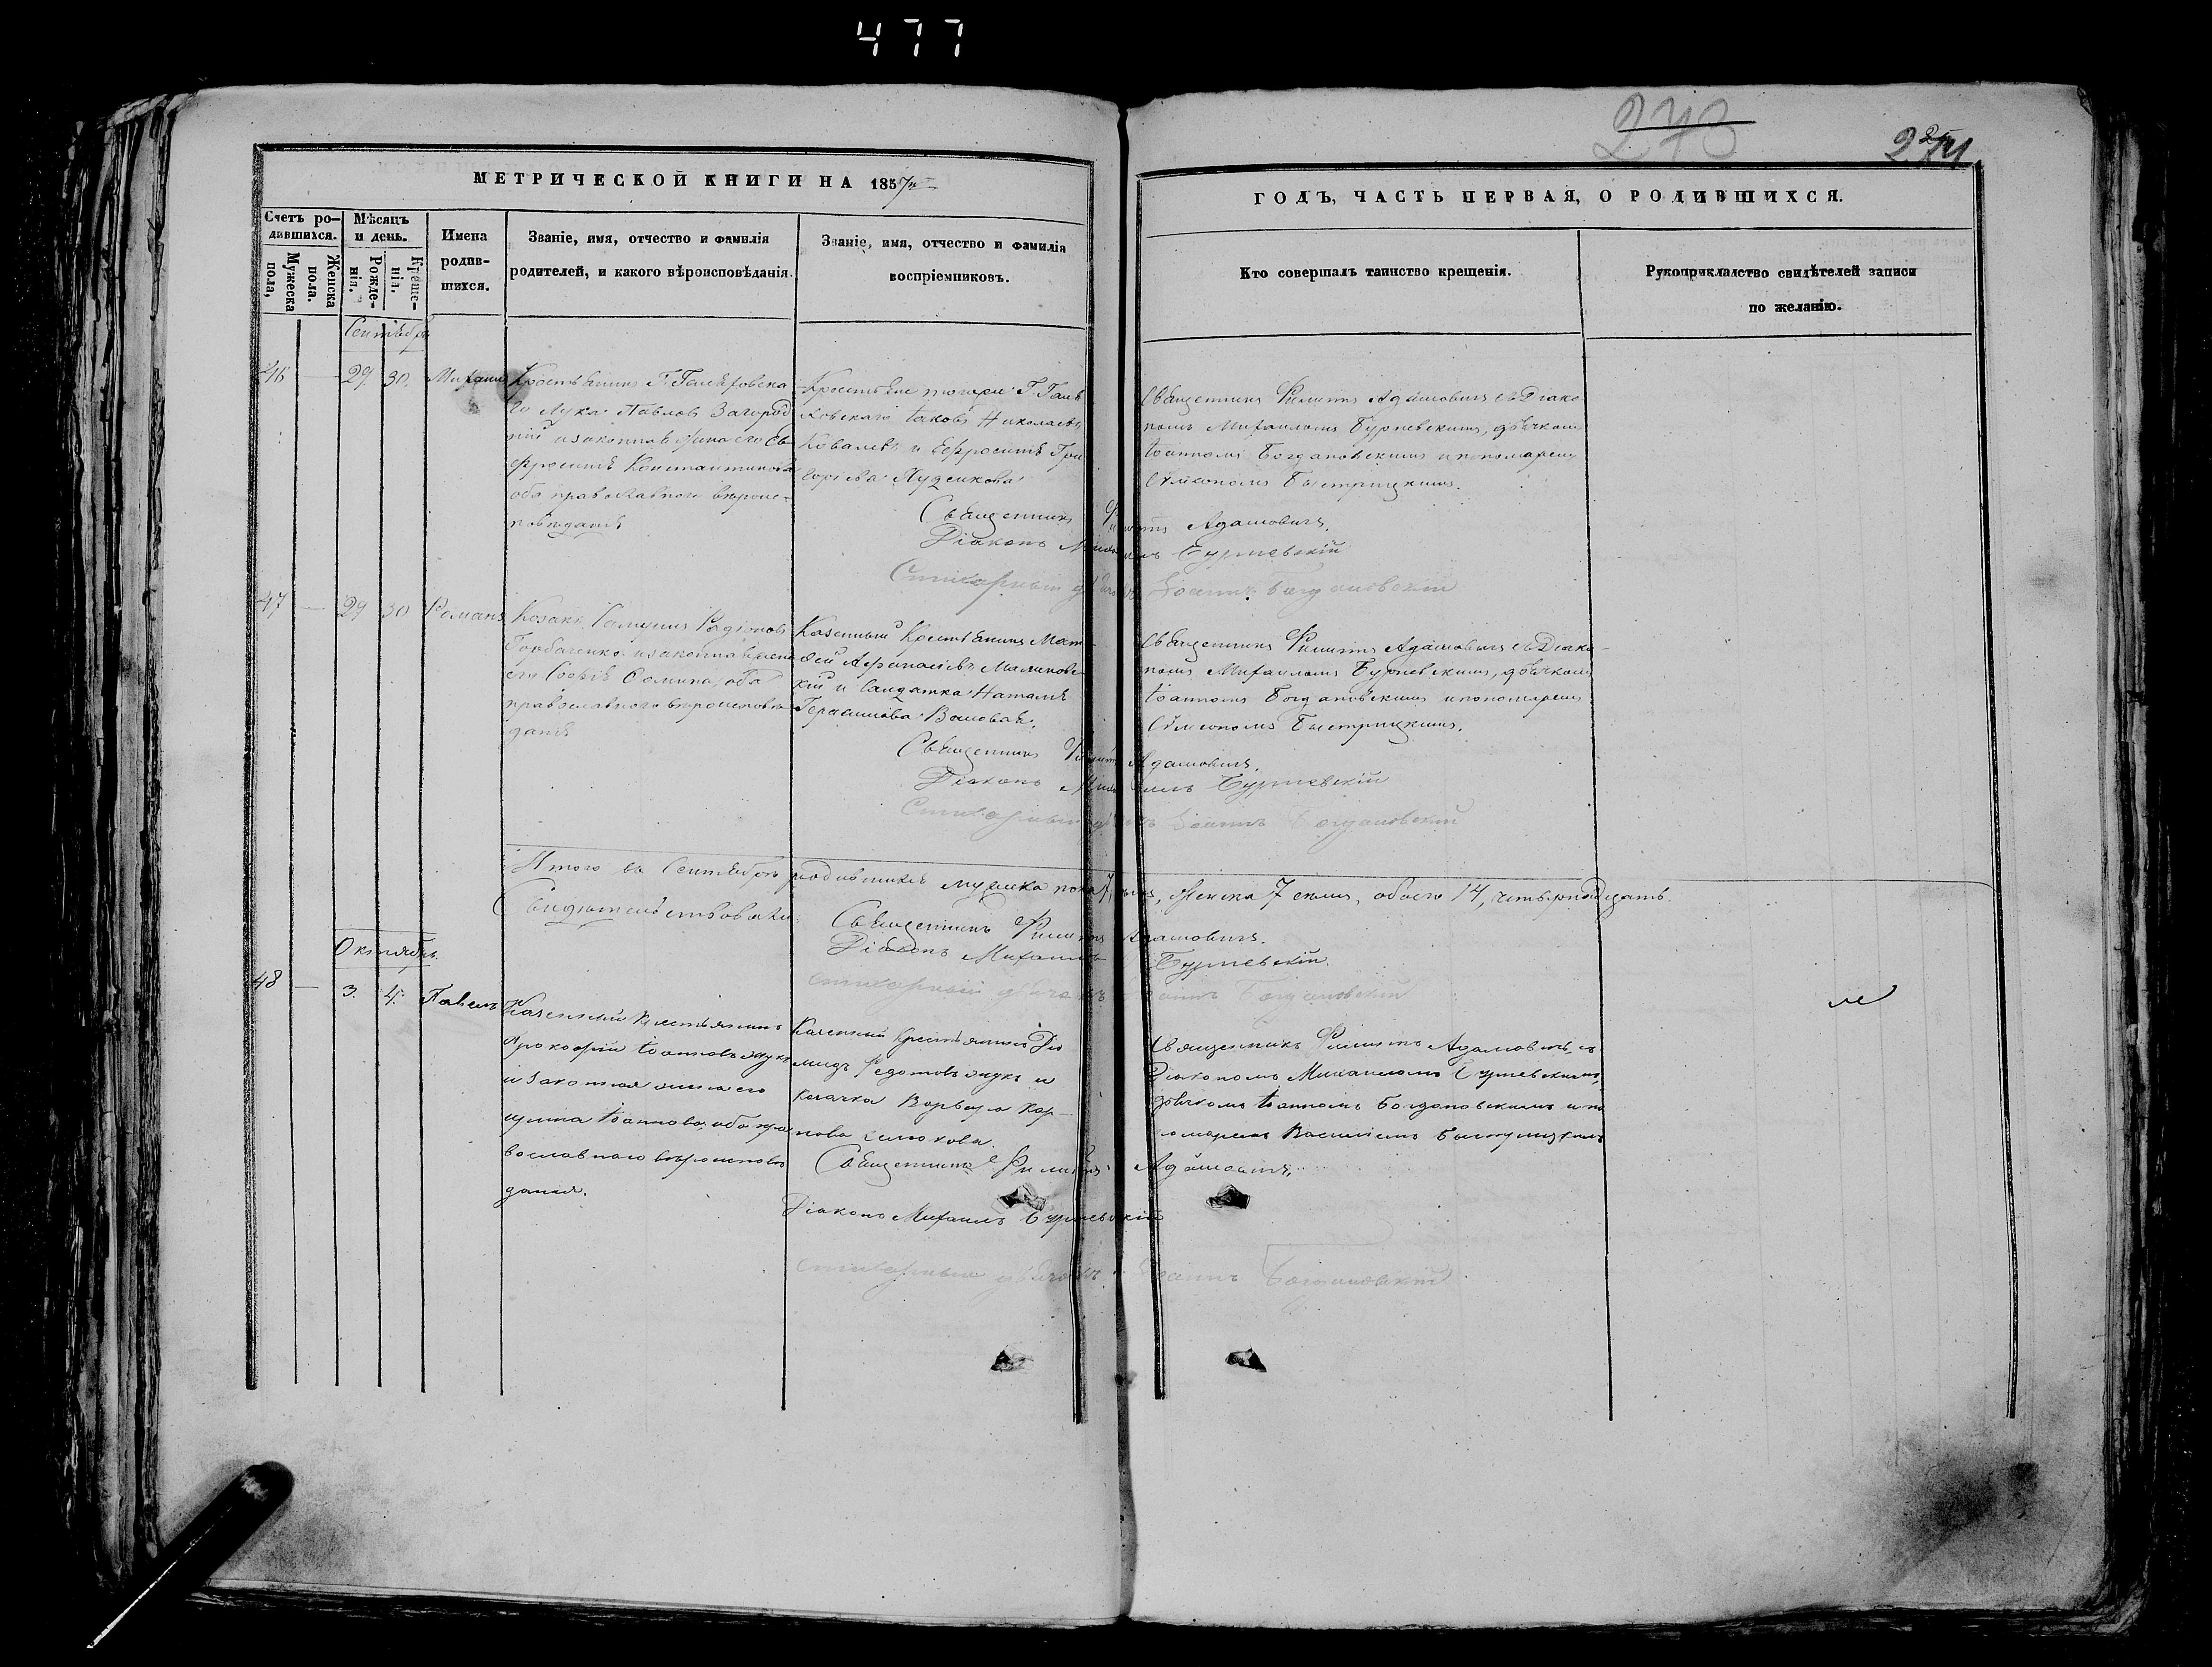 477
273
274
МЕТРИЧЕСКОЙ КНИГИ НА 1857й
ГОДЪ, ЧАСТЬ ПЕРВАЯ, О РОДИВШИХСЯ.
Счетъ родившихся.
Мужеска пола,
Женска пола.
Мѣсяцъ и день.
Рожденія.
Крещенія.
Имена родившихся.
Званіе, имя, отчество и фамилія
родителей, и какого вѣроисповѣданія.
Званіе, имя, отчество и фамилія
воспріемниковъ.
Кто совершалъ таинство крещенія.
Рукоприкладство свидѣтелей записи
по желанію.
Сентябрь
46 — 29 30. Михаилъ
Крестьянинъ Г.
го Лука Павловъ Загород
ній и законная жена его Ев
фросинія Константинова
оба православнаго вѣроис-
повѣданія
Г.
ковскаго Іаковъ Николаевъ
Ковалевъ и Евфросинія Гри
горіева
Священникъ Филиппъ Адамовичъ съ Діако
номъ Михаиломъ Бурневскимъ, дьячкомъ
Іоанномъ Богдановскимъ и пономаремъ
Сѵмеономъ Быстрицкимъ.
Священникъ Филиппъ Адамовичъ.
Діаконъ Михаилъ Бурневскій
Стихарный дьячекъ Іоаннъ Богдановскій
47 — 29 30 Романъ
Козакъ Радіоновъ
Горбаченко и законная жена
его Софія Сомина, оба
православнаго вѣроисповѣ
данія
Казенный Крестьянинъ Мат-
фей Афанасіевъ Малиновс-
кій и Солдатка Наталія
Герасимова
Священникъ Филиппъ Адамовичъ съ Діако-
номъ Михаиломъ Бурневскимъ, дьячкомъ
Іоанномъ Богдановскимъ и пономаремъ
Сѵмеономъ Быстрицкимъ.
Священникъ Филиппъ Адамовичъ.
Діаконъ Михаилъ Бурневскій
Стихарный дьячекъ Іоаннъ Богдановскій
Итого въ Сентябрѣ родившихся мужеска пола 7, женска 7 семь, обоего 14, четырнадцать.
Свидѣтельствовали
Священникъ Филиппъ Адамовичъ.
Діаконъ Михаилъ Бурневскій.
стихарный дьячекъ Іоаннъ Богдановскій
Октябрь.
48 — 3. 4. Павелъ
Казенный крестьянинъ
Прокофій Іоанновъ Жукъ
и законная жена его
Іоаннова, оба пра
вославнаго вѣроисповѣ
данія.
Казенный крестьянинъ Діо
мидъ Федотовъ Жукъ и
козачка Варвара Кар-
пова
Священникъ Филиппъ Адамовичъ съ
Діакономъ Михаиломъ Бурневскимъ,
дьячкомъ Іоанномъ Богдановскимъ и по
номаремъ Василіемъ Быстрицкимъ
Священникъ Филиппъ Адамовичъ.
Діаконъ Михаилъ Бурневскій
стихарный дьячекъ Іоаннъ Богдановскій